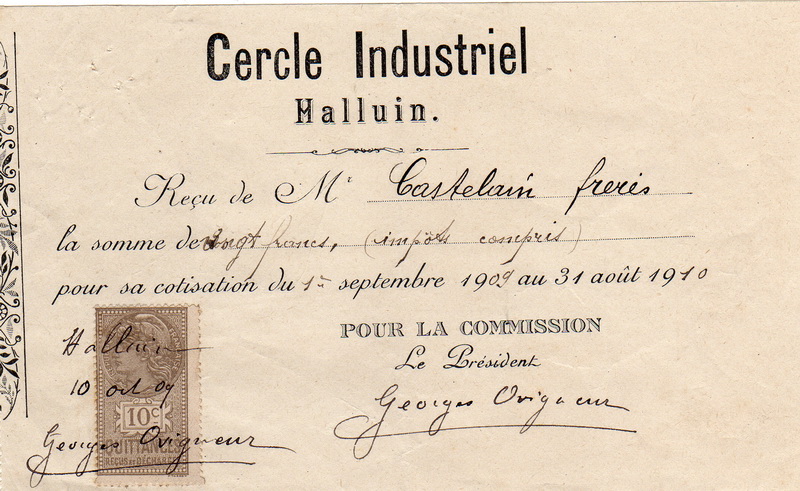 Cercle Industriel
Halluin.
Reçu de Mr Castelain freres
la somme de vingt francs, (impôts compris)
pour sa cotisation du 1er septembre 1909 au 31 août 1910
POUR LA COMMISSION
Le Président
Georges Ovigneur
Halluin
10 oct 09
10c
Georges Ovigneur
QUITTANCES
REÇUS ET DÉCHARGES